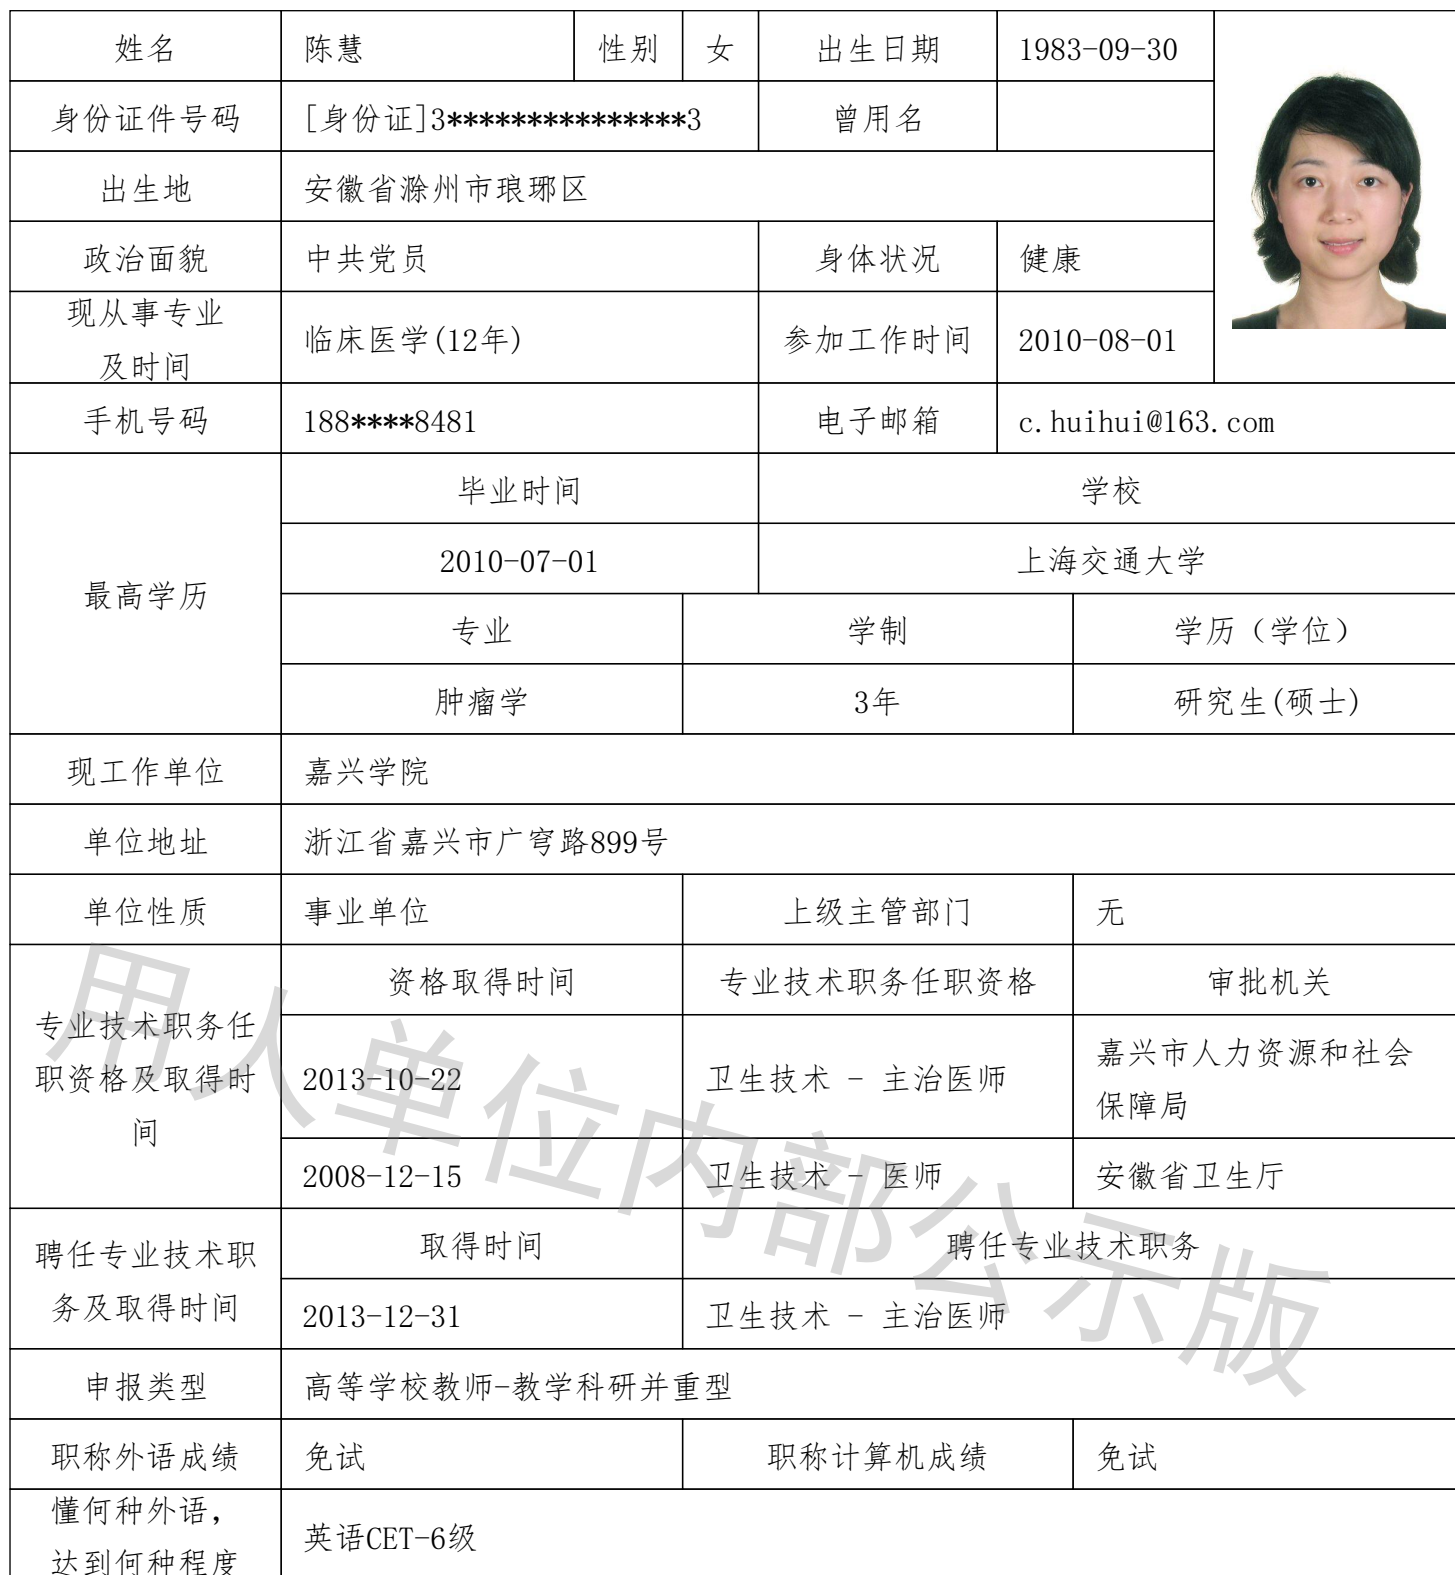 姓名 陈慧 性别 女 出生日期 1983-09-30
身份证件号码 [身份证]3***************3 曾用名
出生地 安徽省滁州市琅琊区
政治面貌 中共党员 身体状况 健康
现从事专业
及时间
临床医学(12年) 参加工作时间 2010-08-01
手机号码 188****8481 电子邮箱 c.huihui@163.com
最高学历
毕业时间 学校
2010-07-01 上海交通大学
专业 学制 学历（学位）
肿瘤学 3年 研究生(硕士)
现工作单位 嘉兴学院
单位地址 浙江省嘉兴市广穹路899号
单位性质 事业单位 上级主管部门 无
专业技术职务任
职资格及取得时
间
资格取得时间 专业技术职务任职资格 审批机关
2013-10-22 卫生技术 - 主治医师 嘉兴市人力资源和社会
保障局
2008-12-15 卫生技术 - 医师 安徽省卫生厅
聘任专业技术职
务及取得时间
取得时间 聘任专业技术职务
2013-12-31 卫生技术 - 主治医师
申报类型 高等学校教师-教学科研并重型
职称外语成绩 免试 职称计算机成绩 免试
懂何种外语，
达到何种程度
英语CET-6级
用人单位内部公示版